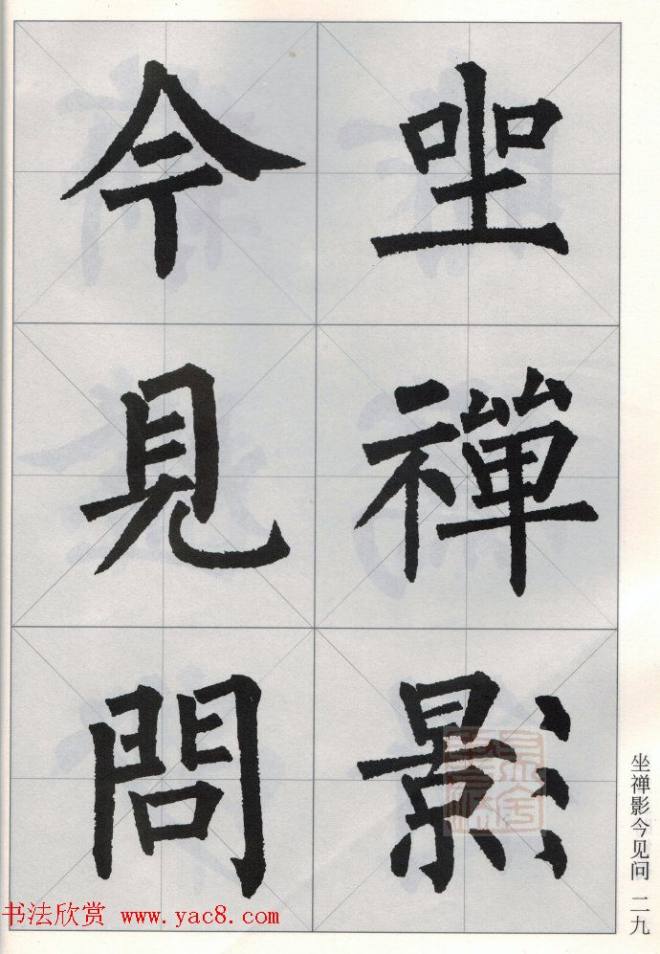 坐禪影
今見問
坐禅影今见问 二九
书法欣赏 www.yac8.com